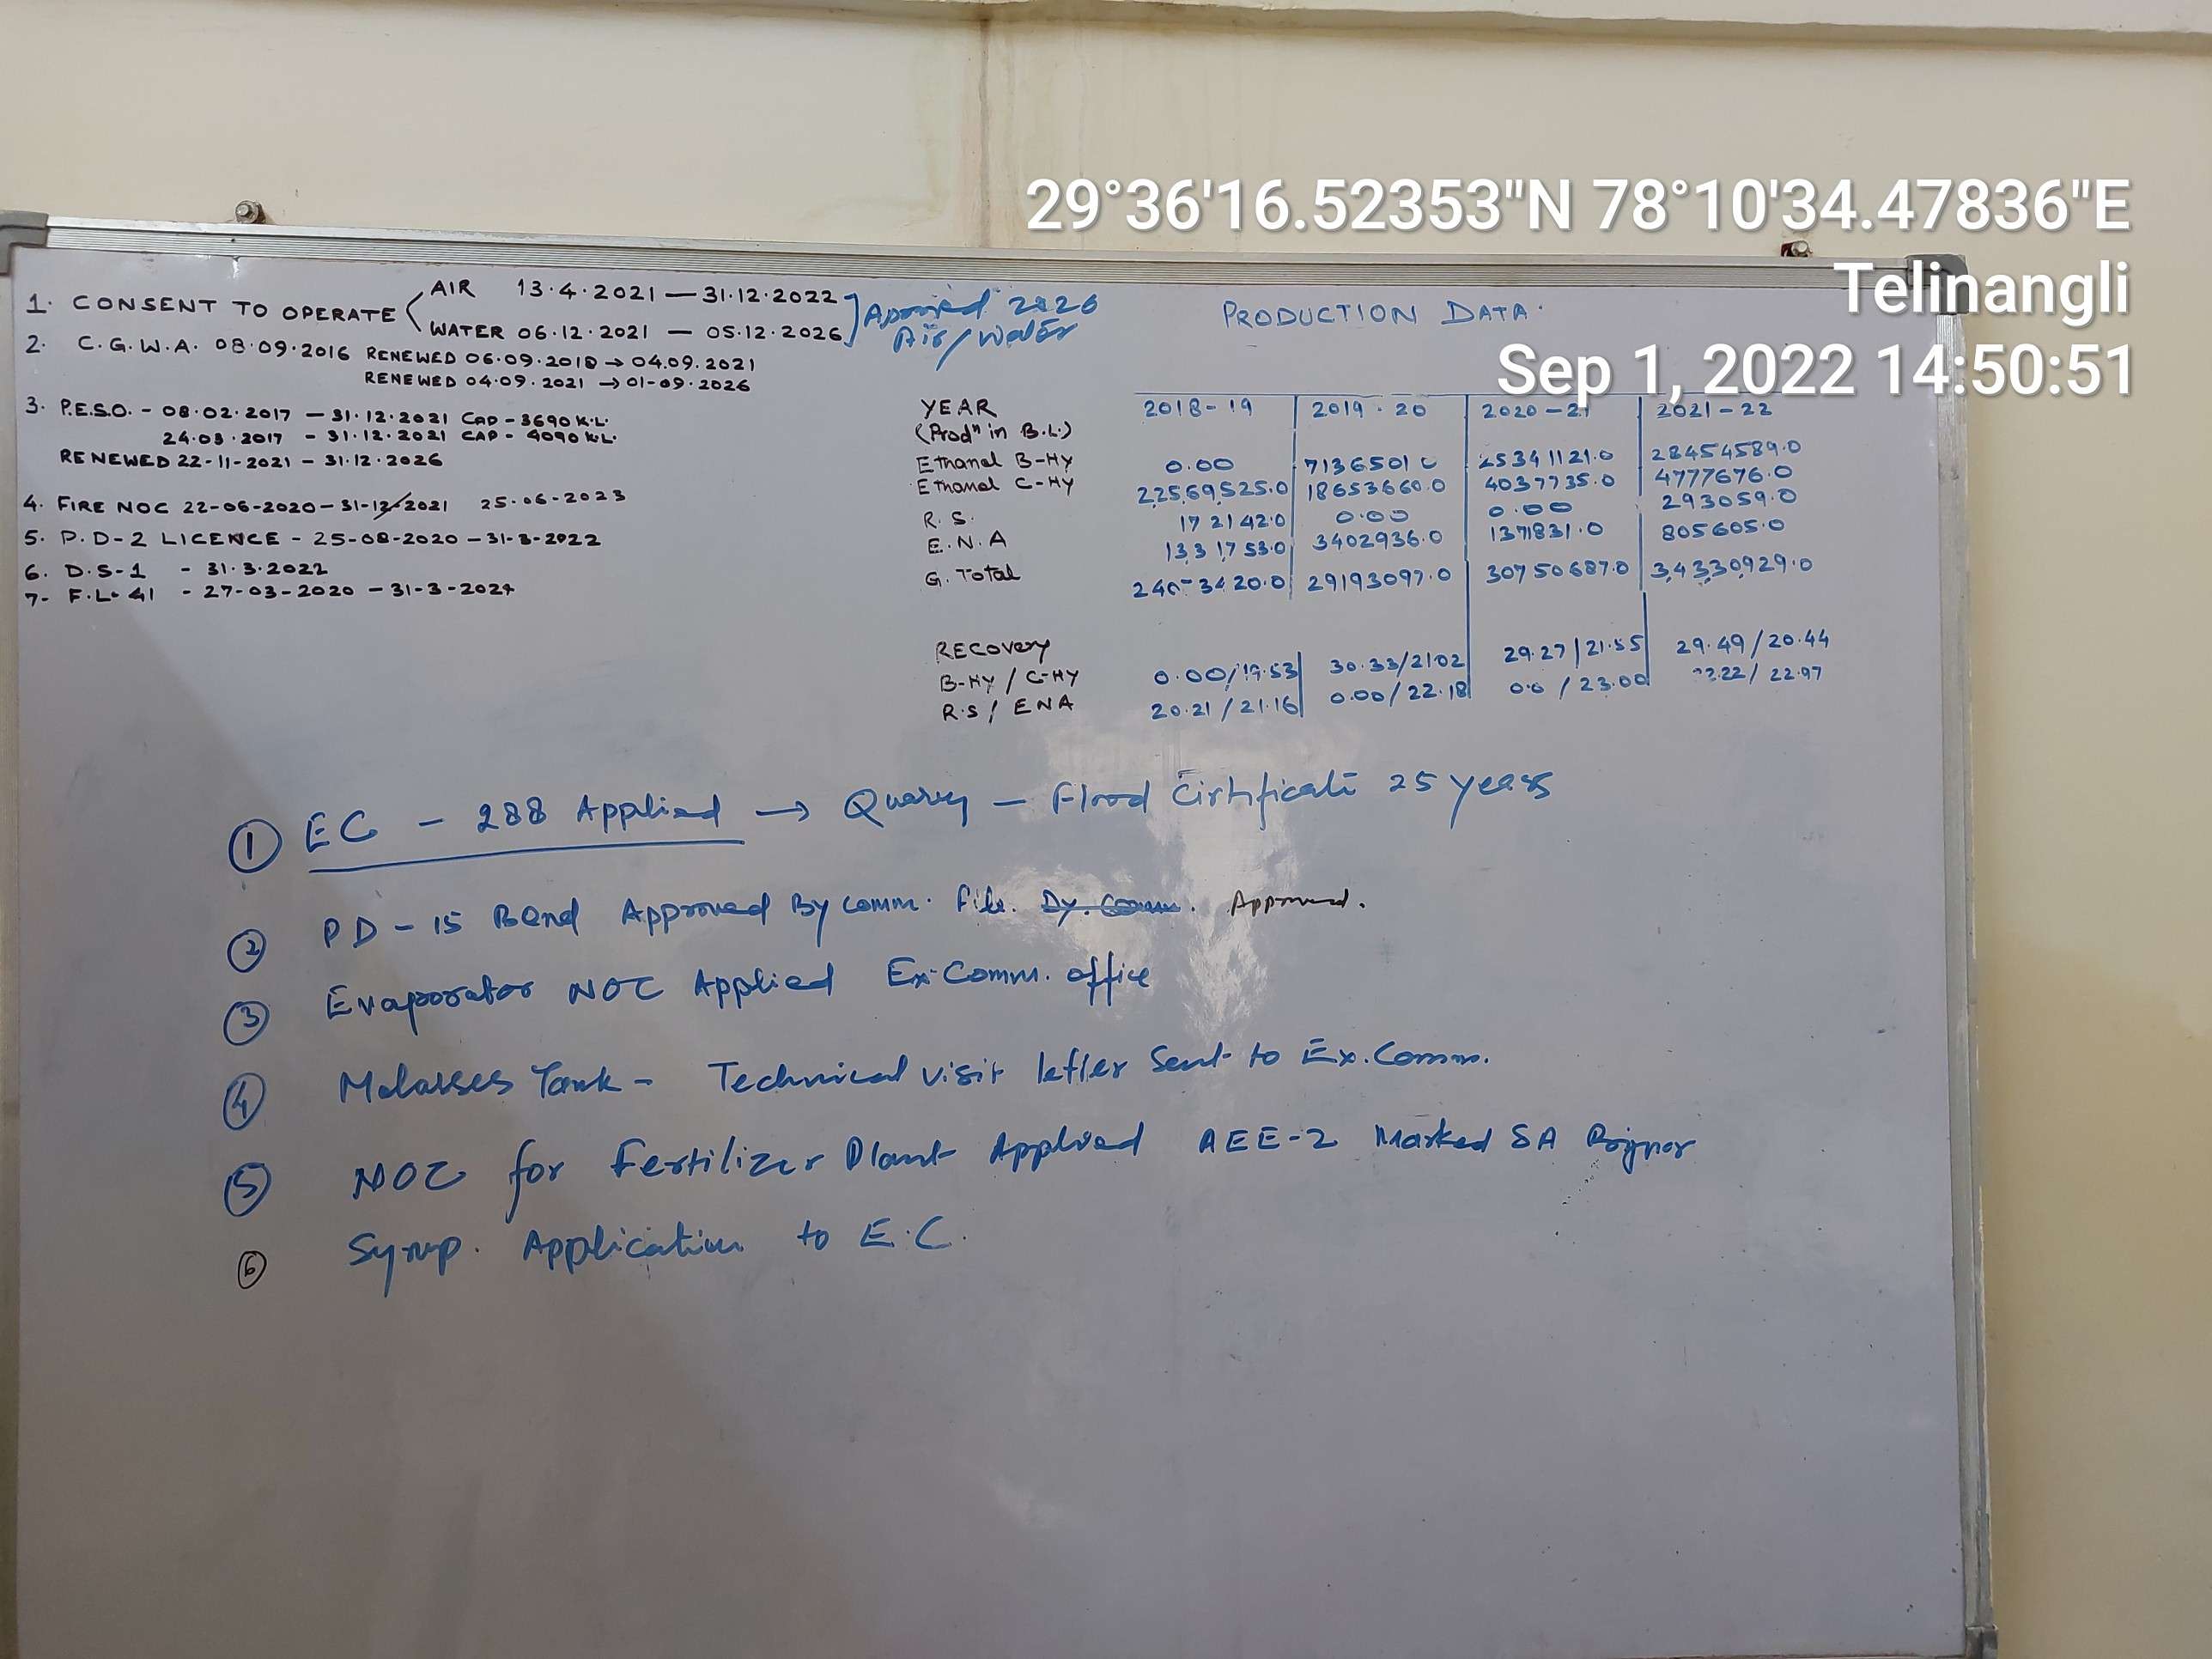 29°36'16.52353"N 78°10'34.47836"E
Telinangli
Sep 1, 2022 14:50:51
1. CONSENT TO OPERATE
AIR 13.4.2021 — 31.12.2022
WATER 06.12.2021 — 05.12.2026
Air/Water
2. C.G.W.A. 08.09.2016 RENEWED 06.09.2018 → 04.09.2021
RENEWED 04.09.2021 → 01-09.2026
3. P.E.S.O. - 08.02.2017 — 31.12.2021 CAP - 3690 K.L.
24.03.2017 - 31.12.2021 CAP - 4090 K.L.
RENEWED 22-11-2021 - 31.12.2026
4. FIRE NOC 22-06-2020 - 31-12-2021 25.06-2023
5. P.D-2 LICENCE - 25-08-2020 - 31-3-2022
6. D.S-1 - 31.3.2022
7- F.L. 41 - 27-03-2020 - 31-3-2024
PRODUCTION DATA.
YEAR 2018-19 2019-20 2020-21 2021-22
(Prodⁿ in B.L.)
Ethanol B-Hy 0.00 7136501 25341121.0 28454589.0
Ethanol C-Hy 22569525.0 18653660.0 4037735.0 4777676.0
R.S. 172142.0 0.00 0.00 293059.0
E.N.A 1331753.0 3402936.0 1371831.0 805605.0
G. Total 3420.0 29193097.0 30750687.0 34330929.0
RECOVERY
B-HY / C-HY 0.00/19.53 30.33/2102 29.27/21.55 29.49/20.44
R.S / ENA 20.21 / 21.16 0.00/22.18 0.0 / 23.00 22/ 22.97
① EC - 288 Applied → Quarey - Flood Cirtificate 25 years
② PD-15 Bond Approved By Comm. File. Dy. Comm. Approved.
③ Evaporator NOC Applied Ex-Comm. office
④ Molasses Tank - Technical visit letter Sent to Ex. Comm.
⑤ NOC for Fertilizer Plant Applied AEE-2 Marked SA Bijnor
⑥ Syrup. Application to E.C.